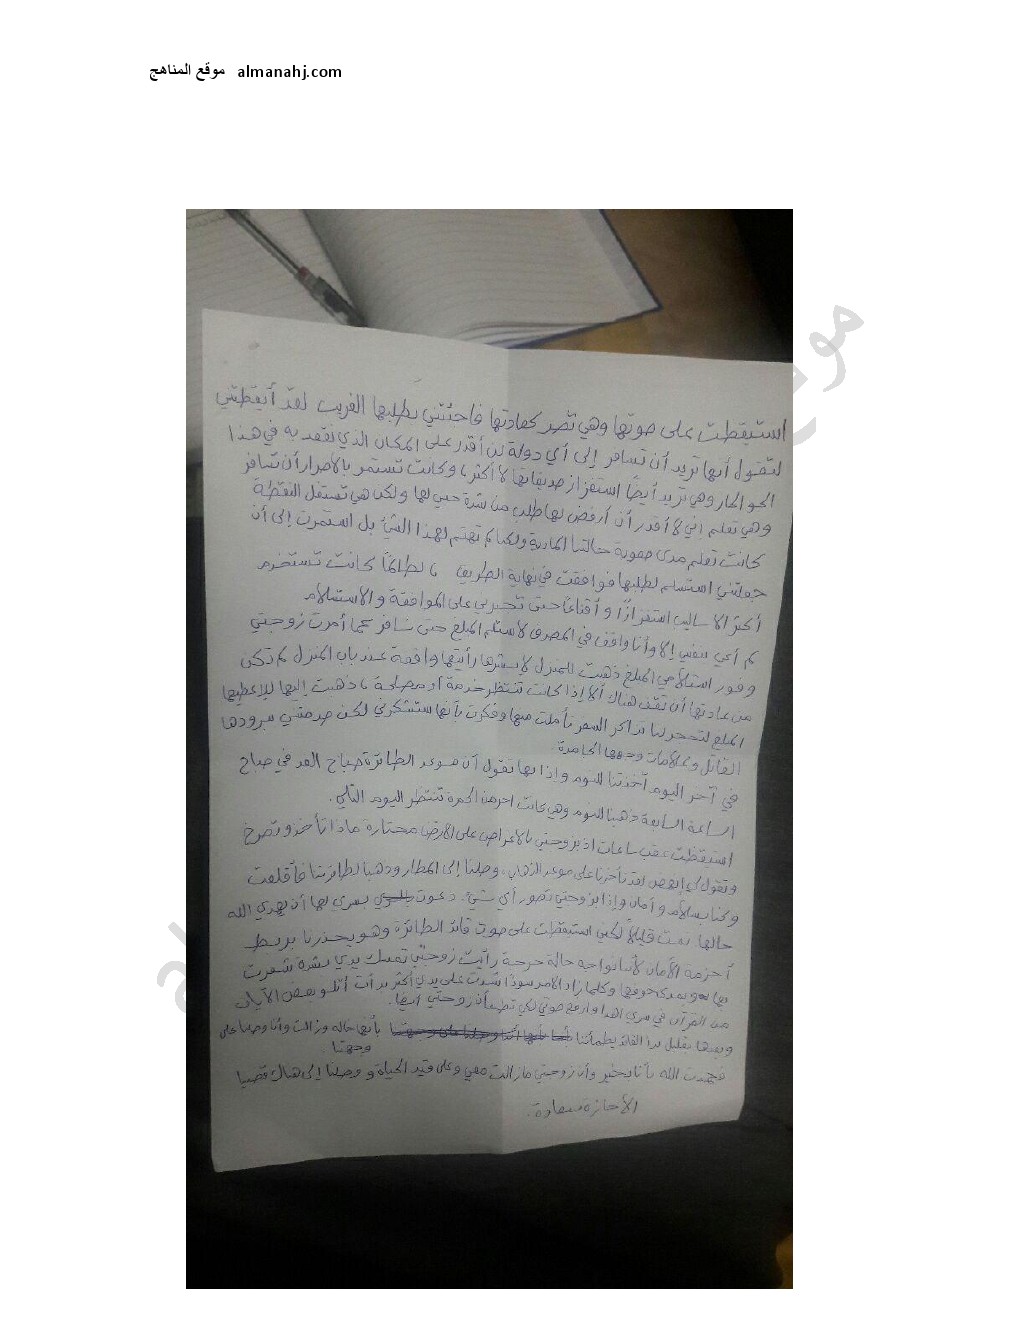 موقع المناهج almanahj.com
استيقظت على صوتها وهي تصر كعادتها فاجئتني بطلبها الغريب لقد أيقظتني
لتقول أنها تريد أن تسافر إلى أي دولة لن أقدر على المكان الذي نقعد به في هذا
الجو الحار وهي تريد أيضًا استفزاز صديقاتها لا أكثر، وكانت تستمر بالاصرار أن تسافر
وهي تعلم اني لا أقدر أن أرفض لها طلب من شدة حبي لها ولكن هي تستغل النقطة
كانت تعلم مدى صعوبة حالتنا المادية ولكنها لم تهتم لهذا الشئ بل استمرت إلى أن
جعلتني استسلم لطلبها فوافقت في نهاية الطريق ، لطالما كانت تستخدم
أكثر الاساليب استفزازًا و أقناعًا حتى تجبرني على الموافقة و الاستسلام
لم أعي بنفسي إلا وأنا واقف في المصرف لاستلم المبلغ حتى نسافر كما أمرت زوجتي
وفور استلامي المبلغ ذهبت للمنزل لابشرها رأيتها واقفة عند باب المنزل لم تكن
من عادتها أن تقف هناك ألا إذا كانت تنتظر خدمة أو مصلحة ، ذهبت إليها لإعطيها
المبلغ لتحجز لنا تذاكر السفر تأملت منها وفكرت بأنها ستشكرني لكن صدمتني ببرودها
القاتل وعلامات وجهها الجامدة.
في آخر اليوم أتخذتنا للنوم وإذا بها تقول أن موعد الطائرة صباح الغد في صباح
الساعة السابعة ذهبنا للنوم وهي كانت احر من الجمرة تنتظر اليوم التالي.
استيقظت عقب ساعات اذ بزوجتي بالاغراض على الأرض محتارة ماذا تأخذ وتصرخ
وتقول لي إنهض لقد تأخرنا على موعد الذهاب، وصلنا إلى المطار وذهبنا لطائرتنا فأقلعت
وكنا بسلام و أمان وإذا بزوجتي تصور أي شيء. دعوت بسري لها أن يهدي الله
حالها نمت قليلاً لكني استيقظت على صوت قائد الطائرة وهو يحذرنا بربط
أحزمة الأمان لأننا نواجه حالة حرجة رأيت زوجتي تمسك يدي بشدة شعرت
بها وبمدى خوفها وكلما زاد الأمر سوءًا شدت على يدي أكثر بدأت أتلو بعض الآيات
من القرآن في سري وأرفع صوتي لكي تطمأن زوجتي
وبعدها بقليل بدأ القائد يطمأننا بأنها حاله وزالت وأننا وصلنا على
وجهتنا
فحمدت الله بأننا بخير وأن زوجتي مازالت معي وعلى قيد الحياة و وصلنا إلى هناك قضينا
الأجازة بسعادة.